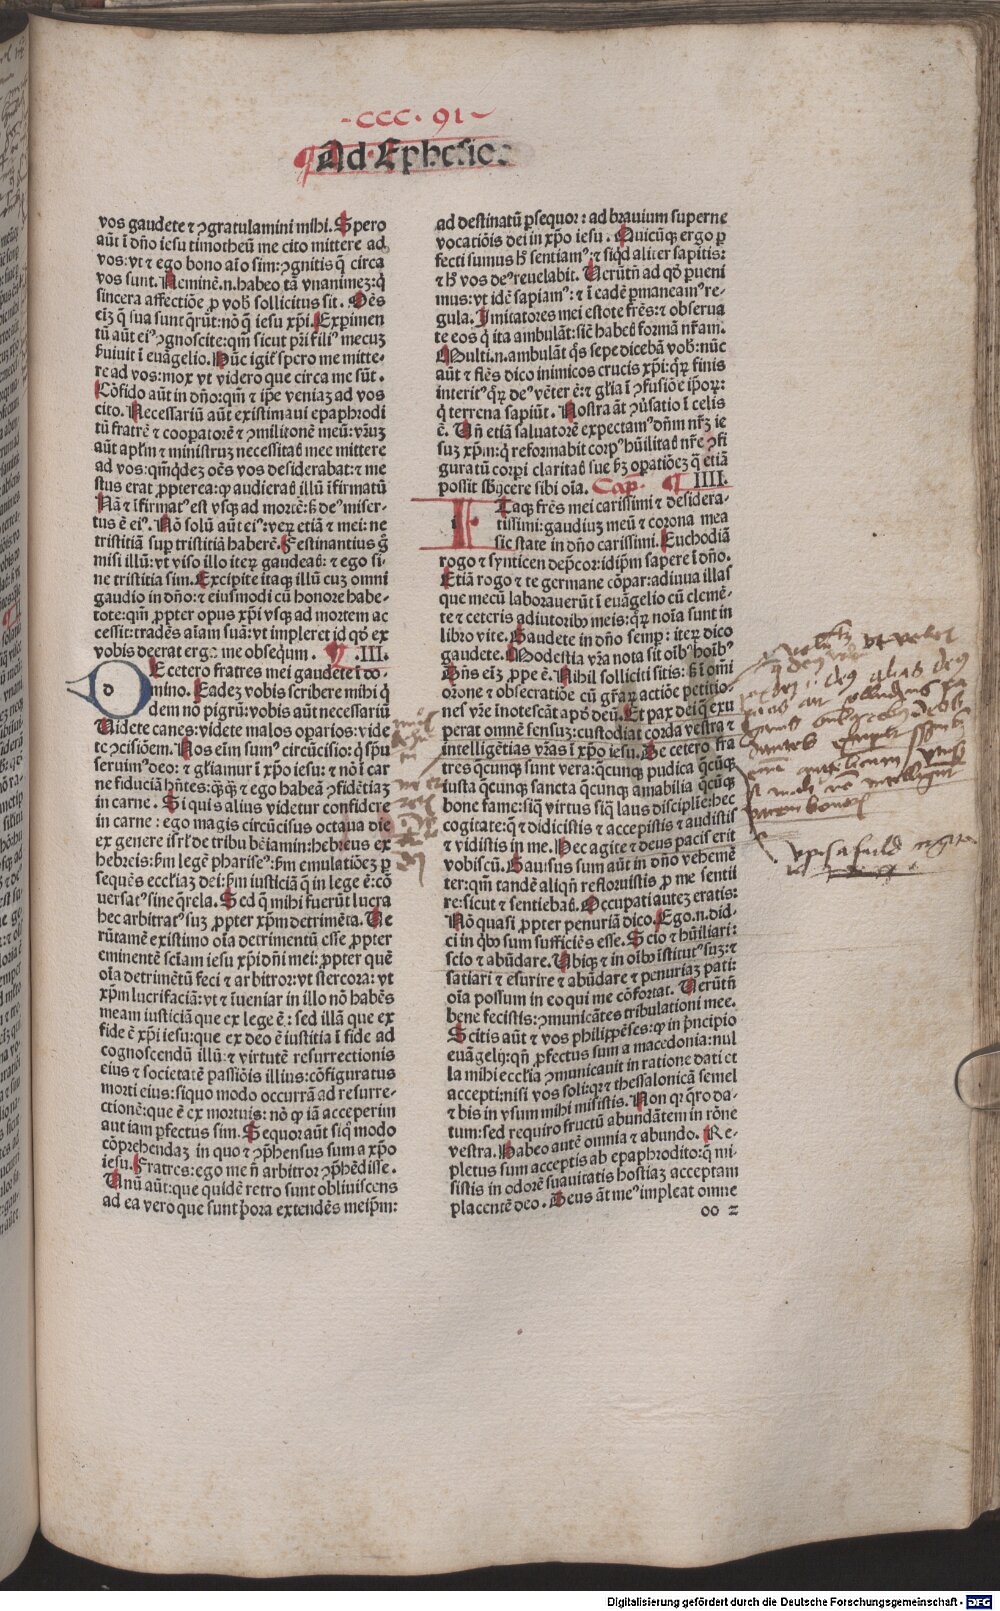 CCC. 91
Ad Ephesio
vos gaudete ⁊ ꝯgratulamini mihi. Spero
aūt ī dn̄o iesu timotheū me cito mittere ad
vos: vt ⁊ ego bono aīo sim: ꝯgnitis q̄ circa
vos sunt. Neminē .n. habeo tā vnanimez: q̇
sincera affectiōe ꝓ vob̄ sollicitus sit. Oēs
eīz q̄ sua sunt q̄rūt: nō q̄ iesu xp̄i. Experimen
tū aūt eiꝰ ꝯgnoscite: qm̄ sicut pr̄i filiꝰ mecuz
ẜuiuit ī euāgelio. Hūc igit̄ spero me mitte-
re ad vos: mox vt videro que circa me sūt.
Cōfido aūt in dn̄o: qm̄ ⁊ ip̄e veniaz ad vos
cito. Necessariū aūt existimaui epaphrodi
tū fratrē ⁊ cooꝑatorē ⁊ ꝯmilitonē meū: vr̄uz
aūt apl̄m ⁊ ministruz necessitatꝭ mee mittere
ad vos: qm̄ q̇dez oēs vos desiderabat: ⁊ me
stus erat ꝓpterea: ꝙ audieratꝭ illū īfirmatū
Nā ⁊ īfirmatꝰ est vsqꝫ ad mortē: ẜ deꝰ miser-
tus ē eiꝰ. Nō solū aūt eiꝰ: veꝝ etiā ⁊ mei: ne
tristitiā suꝑ tristitiā haberē. Festinantius g̊
misi illū: vt viso illo iteꝝ gaudeatꝭ: ⁊ ego si-
ne tristitia sim. Excipite itaqꝫ illū cuz omni
gaudio in dn̄o: ⁊ eiusmodi cū honore habe-
tote: qm̄ ꝓpter opus xp̄i vsqꝫ ad mortem ac
cessit: tradēs aīam suā: vt impleret id qd̄ ex
vobis deerat erga me obsequm. .III.
d
E cetero fratres mei gaudete ī do-
mino. Eadez vobis scribere mihi q̇
dem nō pigrū: vobis aūt necessariū
Videte canes: videte malos oꝑarios: vide
te ꝯcisiōem. Nos eīm sumꝰ circūcisio: q̇ sp̄u
seruimꝰ deo: ⁊ gl̄iamur ī xp̄o iesu: ⁊ nō ī car
ne fiduciā hn̄tes: q̄qꝫ ⁊ ego habeā ꝯfidētiaz
in carne. Si quis alius videtur confidere
in carne: ego magis circūcisus octaua die
ex genere isr̄l de tribu bēiamin: hebreus ex
hebreis: ẜm legē phariseꝰ: ẜm emulatiōez ꝑ
sequēs eccl̄iaz dei: ẜm iusticiā q̄ in lege ē: cō
uersatꝰ sine q̄rela. Sed q̄ mihi fuerūt lucra
hec arbitratꝰ suz ꝓpter xp̄m detrimēta. Ve
rūtamē existimo oīa detrimentū esse ꝓpter
eminentē scīam iesu xp̄i dn̄i mei: ꝓpter quē
oīa detrimētū feci ⁊ arbitror: vt stercora: vt
xp̄m lucrifaciā: vt ⁊ īueniar in illo nō habēs
meam iusticiā que ex lege ē: sed illā que ex
fide ē xp̄i iesu: que ex deo ē iustitia ī fide ad
cognoscendū illū: ⁊ virtutē resurrectionis
eius ⁊ societatē passiōis illius: cōfiguratus
morti eius: siquo modo occurrā ad resurre-
ctionē: que ē ex mortuis: nō ꝙ iā acceperim
aut iam perfectus sim. Sequor aūt siq̊ modo
cōprehendaz in quo ⁊ ꝯp̄hensus sum a xp̄o
iesu. Fratres: ego me n̄ arbitror ꝯp̄hēdisse.
Vnū aūt: que quidē retro sunt obliuiscens
ad ea vero que sunt p̄ora extendēs meip̄m:
ad destinatū ꝑsequor: ad brauium superne
vocatiōis dei in xp̄o iesu. Quicūqꝫ ergo ꝑ
fecti sumus h̄ sentiamꝰ: ⁊ siqd aliter sapitis:
⁊ h̄ vos deꝰ reuelabit. Verūtn̄ ad qd̄ ꝑueni
mus: vt idē sapiamꝰ: ⁊ ī eadē ꝑmaneamꝰ re-
gula. Imitatores mei estote fr̄es: ⁊ obserua
te eos q̇ ita ambulāt: sic̄ habetꝭ formā nr̄am.
Multi .n. ambulāt q̊s sepe dicebā vob̄: nūc
aūt ⁊ flēs dico inimicos crucis xp̄i: qꝝ finis
interitꝰ qꝝ deꝰ vēter ē: ⁊ gl̄ia ī ꝯfusiōe ip̄oꝝ:
q̇ terrena sapiūt. Nostra āt ꝯuersatio ī celis
ē. Vn̄ etiā saluatorē expectamꝰ dn̄m nr̄z ie
suz xp̄m: q̇ reformabit corpꝰ hūilitatꝭ nr̄e ꝯfi
guratū corꝑi claritatꝭ sue ẜz oꝑatiōez q̄ etiā
possit sbijcere sibi oīa. Cap. IIII.
i
Taqꝫ fr̄es mei carissimi ⁊ desidera-
tissimi: gaudiuz meū ⁊ corona mea
sic state in dn̄o carissimi. Euchodiā
rogo ⁊ synticen dep̄cor: idip̄m sapere ī dn̄o.
Etiā rogo ⁊ te germane cōpar: adiuua illas
que mecū laborauerūt ī euāgelio cū clemē-
te ⁊ ceteris adiutoribꝰ meis: qꝝ noīa sunt in
libro vite. Gaudete in dn̄o semꝑ: iteꝝ dico
gaudete. Modestia vr̄a nota sit oībꝰ hoībꝰ
Dn̄s eīz ꝓpe ē. Nihil solliciti sitis: ẜ ī omī
orōne ⁊ obsecratiōe cū gr̄aꝝ actiōe petitio-
nes vr̄e īnotescāt apd̄ deū. Et pax dei q̄ exu
perat omnē sensuz: custodiat corda vestra ⁊
intelligētias vr̄as ī xp̄o iesu. De cetero fra
tres q̄cunqꝫ sunt vera: q̄cunqꝫ pudica q̄cūqꝫ
iusta q̄cunqꝫ sancta q̄cunqꝫ amabilia q̄cūqꝫ
bone fame: siq̄ virtus siq̄ laus disciplīe: hec
cogitate: q̄ ⁊ didicistis ⁊ accepistis ⁊ audistis
⁊ vidistis in me. Hec agite ⁊ deus pacis erit
vobiscū. Gauisus sum aūt in dn̄o vehemē
ter: qm̄ tandē aliqn̄ refloruistis ꝓ me senti
re: sicut ⁊ sentiebatꝭ. Occupati autez eratis:
Nō quasi ꝓpter penuriā dico. Ego .n. did-
ci in qbꝰ sum sufficiēs esse. Scio ⁊ hūiliari:
scio ⁊ abūdare. Vbiqꝫ ⁊ in oībꝰ istitutꝰ suz: ⁊
satiari ⁊ esurire ⁊ abūdare ⁊ penuriaz pati:
oīa possum in eo qui me cōfortat. Verūtn̄
bene fecistis: ꝯmunicātes tribulationi mee.
Scitis aūt ⁊ vos philippēses: ꝙ in p̄ncipio
euāgelij: qn̄ ꝓfectus sum a macedonia: nul
la mihi eccl̄ia ꝯmunicauit in ratione dati et
accepti: nisi vos soli: qꝛ ⁊ thessalonicā semel
⁊ bis in vsum mihi misistis. Non qꝛ q̄ro da-
tum: sed requiro fructū abundātem in rōne
vestra. Habeo autē omnia ⁊ abundo. Re-
pletus sum acceptis ab epaphrodito: q̄ mi-
sistis in odorē suauitatis hostiaz acceptam
placentē deo. Deus āt meꝰ impleat omne
oo 2
Digitalisierung gefördert durch die Deutsche Forschungsgemeinschaft - DFG